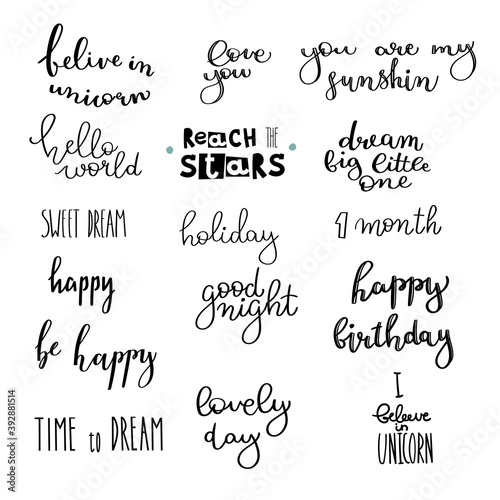 belive in
unicorn
love
you
you are my
sunshin
hello
world
ReacH THE
STaRS
dream
big little
one
SWEET DREAM
holiday
1 month
happy
good
night
happy
birthday
be happy
lovely
day
I
beleeve
in
UNICORN
TIME to DREAM
Adobe Stock | #392881514